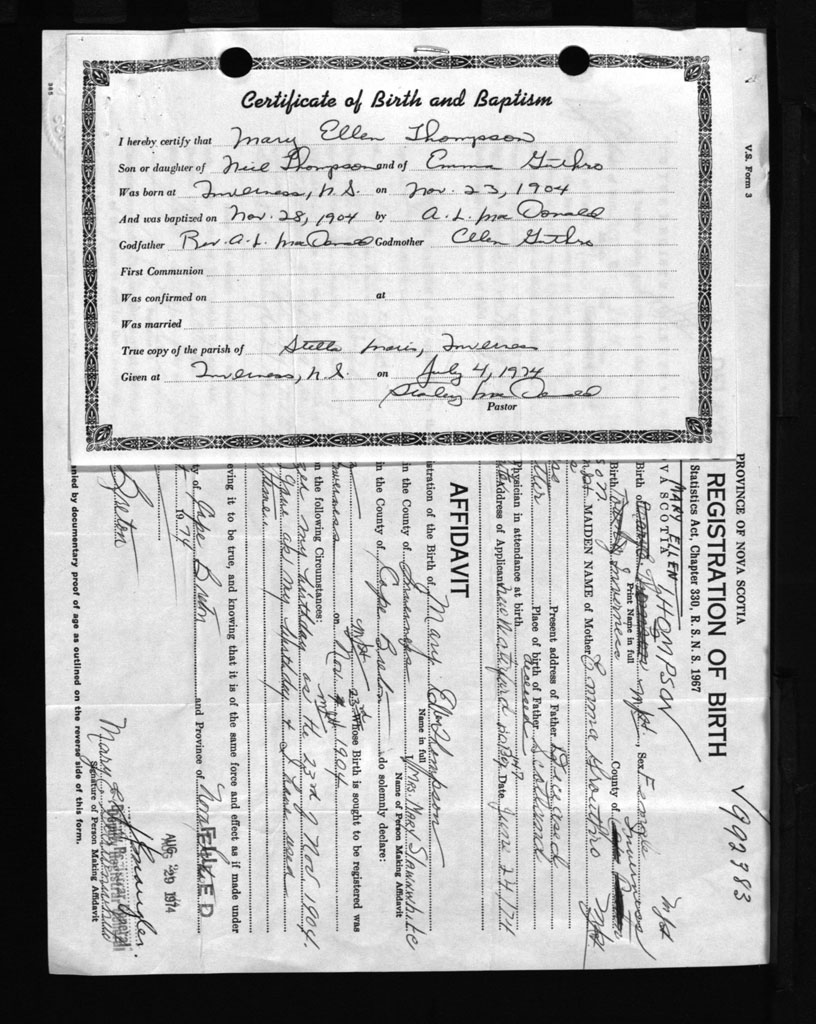 Certificate of Birth and Baptism
I hereby certify that Mary Ellen Thompson
Son or daughter of Neil Thompson and of Emma Guthro
Was born at Inverness, N.S. on Nov. 23, 1904
And was baptized on Nov. 28, 1904 by A. L. MacDonald
Godfather Rev. A. L. MacDonald Godmother Ellen Guthro
First Communion
Was confirmed on at
Was married
True copy of the parish of Stella Maris, Inverness
Given at Inverness, N.S. on July 4, 1974
Stanley MacDonald
Pastor
365
V.S. Form 3
PROVINCE OF NOVA SCOTIA
REGISTRATION OF BIRTH
Statistics Act, Chapter 330, R. S. N. S. 1967
V992383
VA SCOTIA
MARY ELLEN THOMPSON
Print Name in full
Birth of Sex Female
Birth Inverness County of Inverness
MAIDEN NAME of Mother Emma Grouthro
Present address of Father Deceased
Place of birth of Father Scotland
Physician in attendance at birth deceased
Address of Applicant New Waterford Date June 24/74
AFFIDAVIT
stration of the Birth of Mary Ellen Thompson
Name in full
I, Mrs. Mary Slaunwhite
Name of Person Making Affidavit
in the County of Inverness
in the County of Cape Breton do solemnly declare:
Whose Birth is sought to be registered was
Inverness on Nov 23rd 1904
n the following Circumstances:
my birthday as the 23rd of Nov 1904.
my birthday & I have used
eving it to be true, and knowing that it is of the same force and effect as if made under
ty of Cape Breton and Province of Nova
1974
Breton
FILED
AUG 29 1974
Deputy Registrar General
Mary Slaunwhite
Signature of Person Making Affidavit
nied by documentary proof of age as outlined on the reverse side of this form.